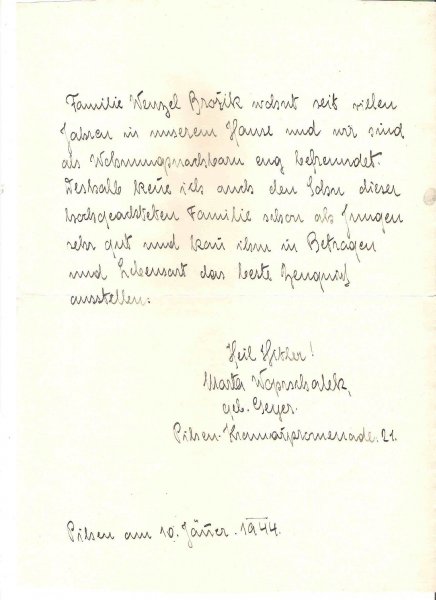 Familie Wenzel Brožik wohnt seit vielen
Jahren in unserem Hause und wir sind
als Wohnungsnachbarn eng befreundet.
Deshalb kenne ich auch den Sohn dieser
hochgeachteten Familie schon als Jungen
sehr gut und kann ihm in Betragen
und Lebensart das beste Zeugniß
ausstellen.
Heil Hitler!
Marta Woprschalek,
geb. Geyer.
Pilsen. 21.
Pilsen am 10. Jänner. 1944.